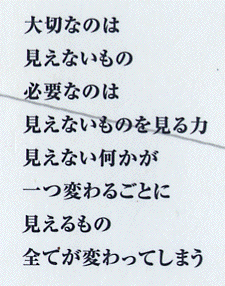 大切なのは
見えないもの
必要なのは
見えないものを見る力
見えない何かが
一つ変わるごとに
見えるもの
全てが変わってしまう